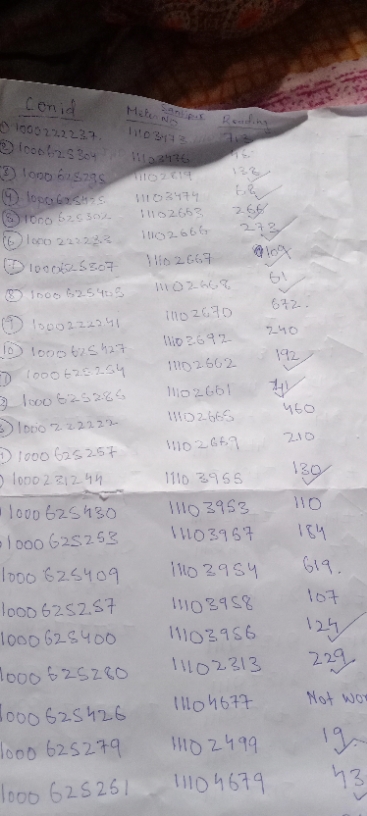 Conid Meter No Reading
① 1000222237 11103473
② 1000625304 11103476
③ 1000625295 11102819 138
④ 1000625425 11103474 68
⑤ 1000625302 11102663 266
⑥ 1000222233 11102666 273
⑦ 1000625307 11102667 109
⑧ 1000625403 11102668 61
⑨ 1000222241 11102670 672
⑩ 1000625427 11103692 240
1000625254 11102662 192
1000625286 11102661
1000222222 11102665 460
1000625257 11102669 210
1000231244 11103955 130
1000625430 11103953 110
1000625253 11103957 184
1000625409 11103954 619.
1000625257 11103958 107
1000625400 11103956 124
1000625280 11102313 229
1000625426 11104677 Not wor
1000625279 11102499 19
1000625251 11104679 43